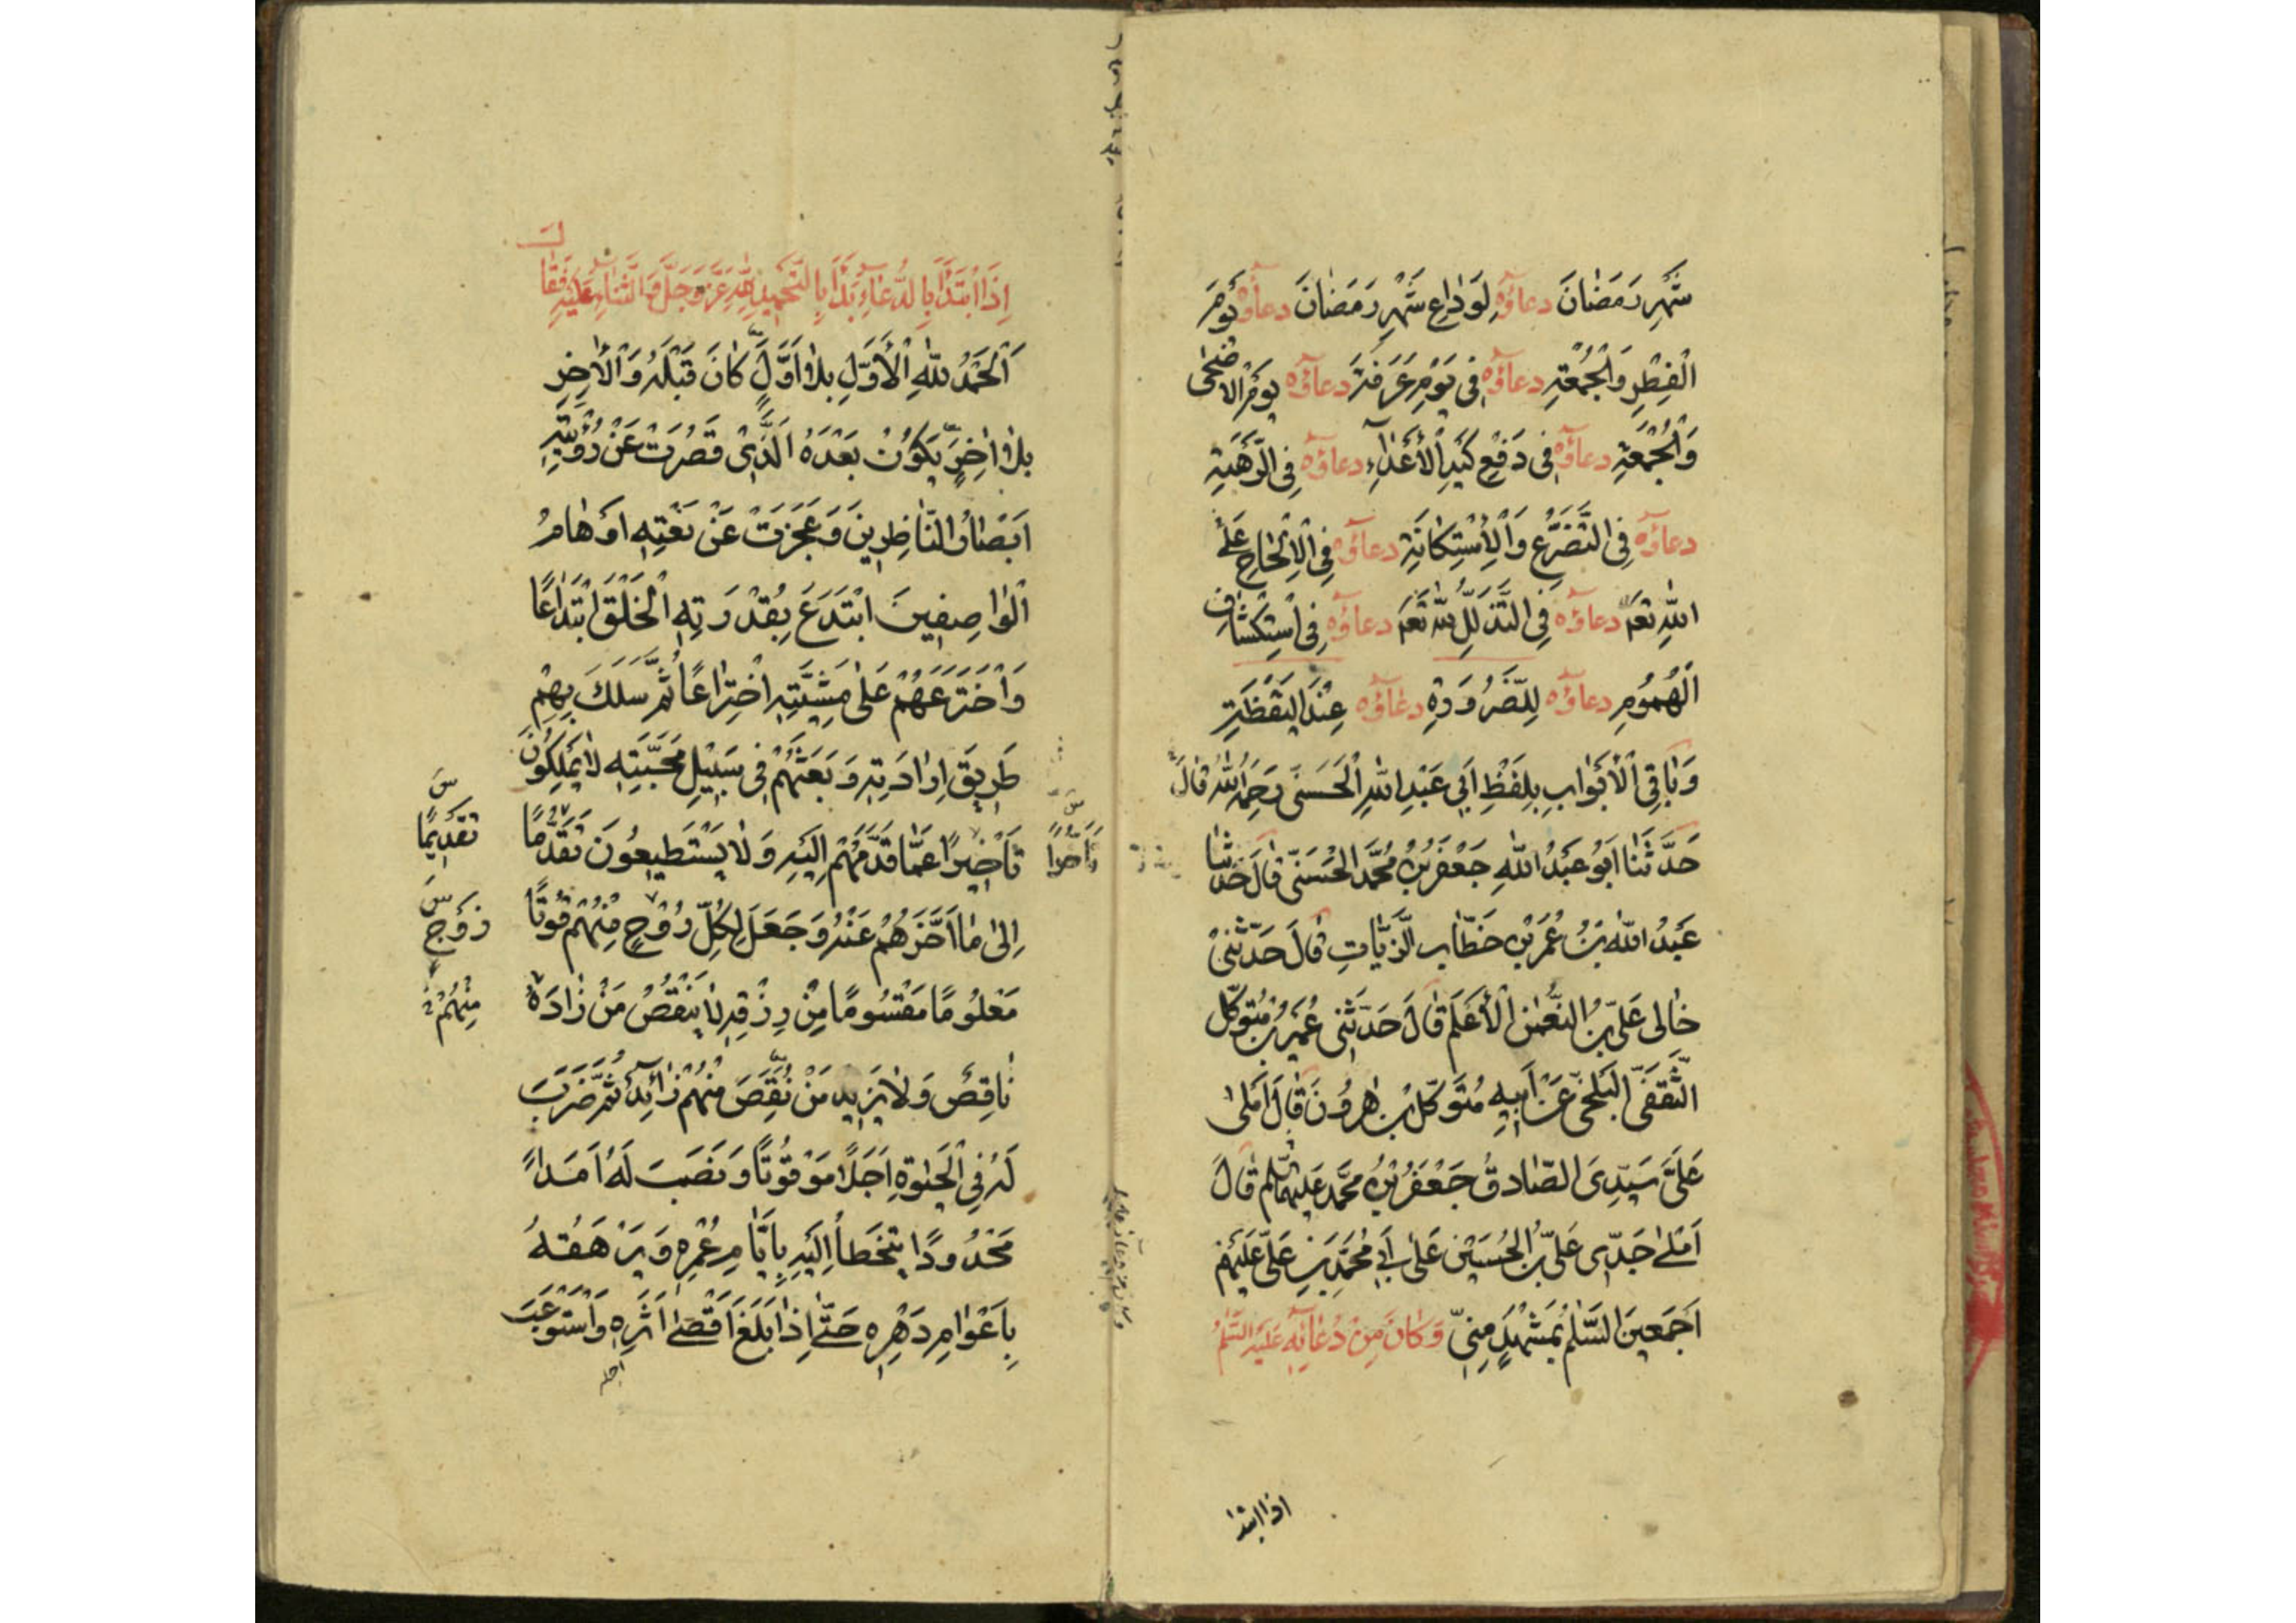 شَهْرِ رَمَضٰانَ دعاؤه لِوَدٰاعِ شَهْرِ رَمَضٰانَ دعاؤه يَوْمَ
الْفِطْرِ وَالْجُمُعَةِ دعاؤه فِى يَوْمِ عَرَفَةَ دعاؤه يَوْمَ الاضْحٰى
وَالْجُمُعَةِ دعاؤه فِى دَفْعِ كَيْدِ الْأَعْدٰاءِ دعاؤه فِى الرَّهْبَةِ
دعاؤه فِى التَّضَرُّعِ وَالْاِسْتِكٰانَةِ دعاؤه فِى الْاِلْحٰاحِ عَلَى
اللّٰهِ تَعَ دعاؤه فِى التَّذَلُّلِ لِلّٰهِ تَعَ دعاؤه فِى اسْتِكْشٰافِ
الْهُمُومِ دعاؤه لِلضَّرُورَةِ دعاؤه عِنْدَ الْيَقْظَةِ
وَبٰاقِى الْأَبْوٰابِ بِلَفْظِ اَبِى عَبْدِ اللّٰهِ الْحَسَنِى رَحِمَهُ اللّٰهُ قٰالَ
حَدَّثَنٰا اَبُو عَبْدُ اللّٰهِ جَعْفَرُ بْنُ مُحَمَّد الْحَسَنِىّ قٰالَ حَدَّثَنٰا
عَبْدُ اللّٰه بْنُ عُمَرَ بْنِ خَطّٰاب الزَّيّٰاتِ قٰالَ حَدَّثَنِىْ
خٰالِى عَلِىّ بْنُ النُّعْمٰنِ الْأَعْلَم قٰالَ حَدَّثَنِى عُمَيْر بْنُ مُتَوَكِّل
الثَّقَفِىّ الْبَلْخِىّ عَنْ اَبِيهِ مُتَوَكِّل بْنِ هٰرُونَ قٰالَ اَمْلٰى
عَلَىَّ سَيِّدِىَ الصّٰادِقُ جَعْفَرُ بْنُ مُحَمَّد عَلَيْهِمَا السَّلٰم قٰالَ
اَمْلٰى جَدِّى عَلِىُّ بْنُ الْحُسَيْنِ عَلٰى اَبِى مُحَمَّدِ بْنِ عَلِىّ عَلَيْهِمْ
اَجْمَعِينَ السَّلٰمُ بِمَشْهَدٍ مِنِّى وَكٰانَ مِنْ دُعٰائِهِ عَلَيْهِ السَّلٰمُ
اذا ابتدا
اِذَا ابْتَدَأَ بِالدُّعٰاءِ بَدَأَ بِالتَّحْمِيدِ لِلّٰهِ عَزَّ وَجَلَّ وَالثَّنٰاءِ عَلَيْهِ فَقٰالَ
اَلْحَمْدُ لِلّٰهِ الْأَوَّلِ بِلٰا اَوَّلٍ كٰانَ قَبْلَهُ وَالْاٰخِرِ
بِلٰا اٰخِرٍ يَكُوْنُ بَعْدَهُ اَلَّذِىْ قَصُرَتْ عَنْ رُؤْيَتِهِ
اَبْصٰارُ النّٰاظِرِينَ وَعَجَزَتْ عَنْ نَعْتِهِ اَوْهٰامُ
الْوٰاصِفِينَ ابْتَدَعَ بِقُدْرَتِهِ الْخَلْقَ ابْتِدٰاعًا
وَاخْتَرَعَهُمْ عَلٰى مَشِيَّتِهِ اخْتِرٰاعًا ثُمَّ سَلَكَ بِهِمْ
طَرِيقَ اِرٰادَتِهِ وَبَعَثَهُمْ فِى سَبِيْلِ مَحَبَّتِهِ لٰا يَمْلِكُونَ
تَأْخِيرًا عَمّٰا قَدَّمَهُمْ اِلَيْهِ وَلٰا يَسْتَطِيعُونَ تَقَدُّمًا
تَأَخُّرًا
تَقْدِيمًا
اِلىٰ مٰا اَخَّرَهُمْ عَنْهُ وَجَعَلَ لِكُلِّ رُوْحٍ مِنْهُمْ قُوتًا
زَوْجٍ
مَعْلُومًا مَقْسُومًا مِنْ رِزْقِهِ لٰا يَنْقُصُ مَنْ زٰادَهُ
مِنْهُمْ
نٰاقِصٌ وَلٰا يَزِيدُ مَنْ نَقَصَ مِنْهُمْ زٰائِدٌ ثُمَّ ضَرَبَ
لَهُ فِى الْحَيٰوةِ اَجَلًا مَوْقُوتًا وَنَصَبَ لَهُ اَمَدًا
مَحْدُودًا يَتَخَطَّأُ اِلَيْهِ بِاَيّٰامِ عُمْرِهِ وَيَرْهَقُهُ
بِاَعْوٰامِ دَهْرِهِ حَتّٰى اِذٰا بَلَغَ اَقْصٰى اَثَرِهِ وَاسْتَوْعَبَ